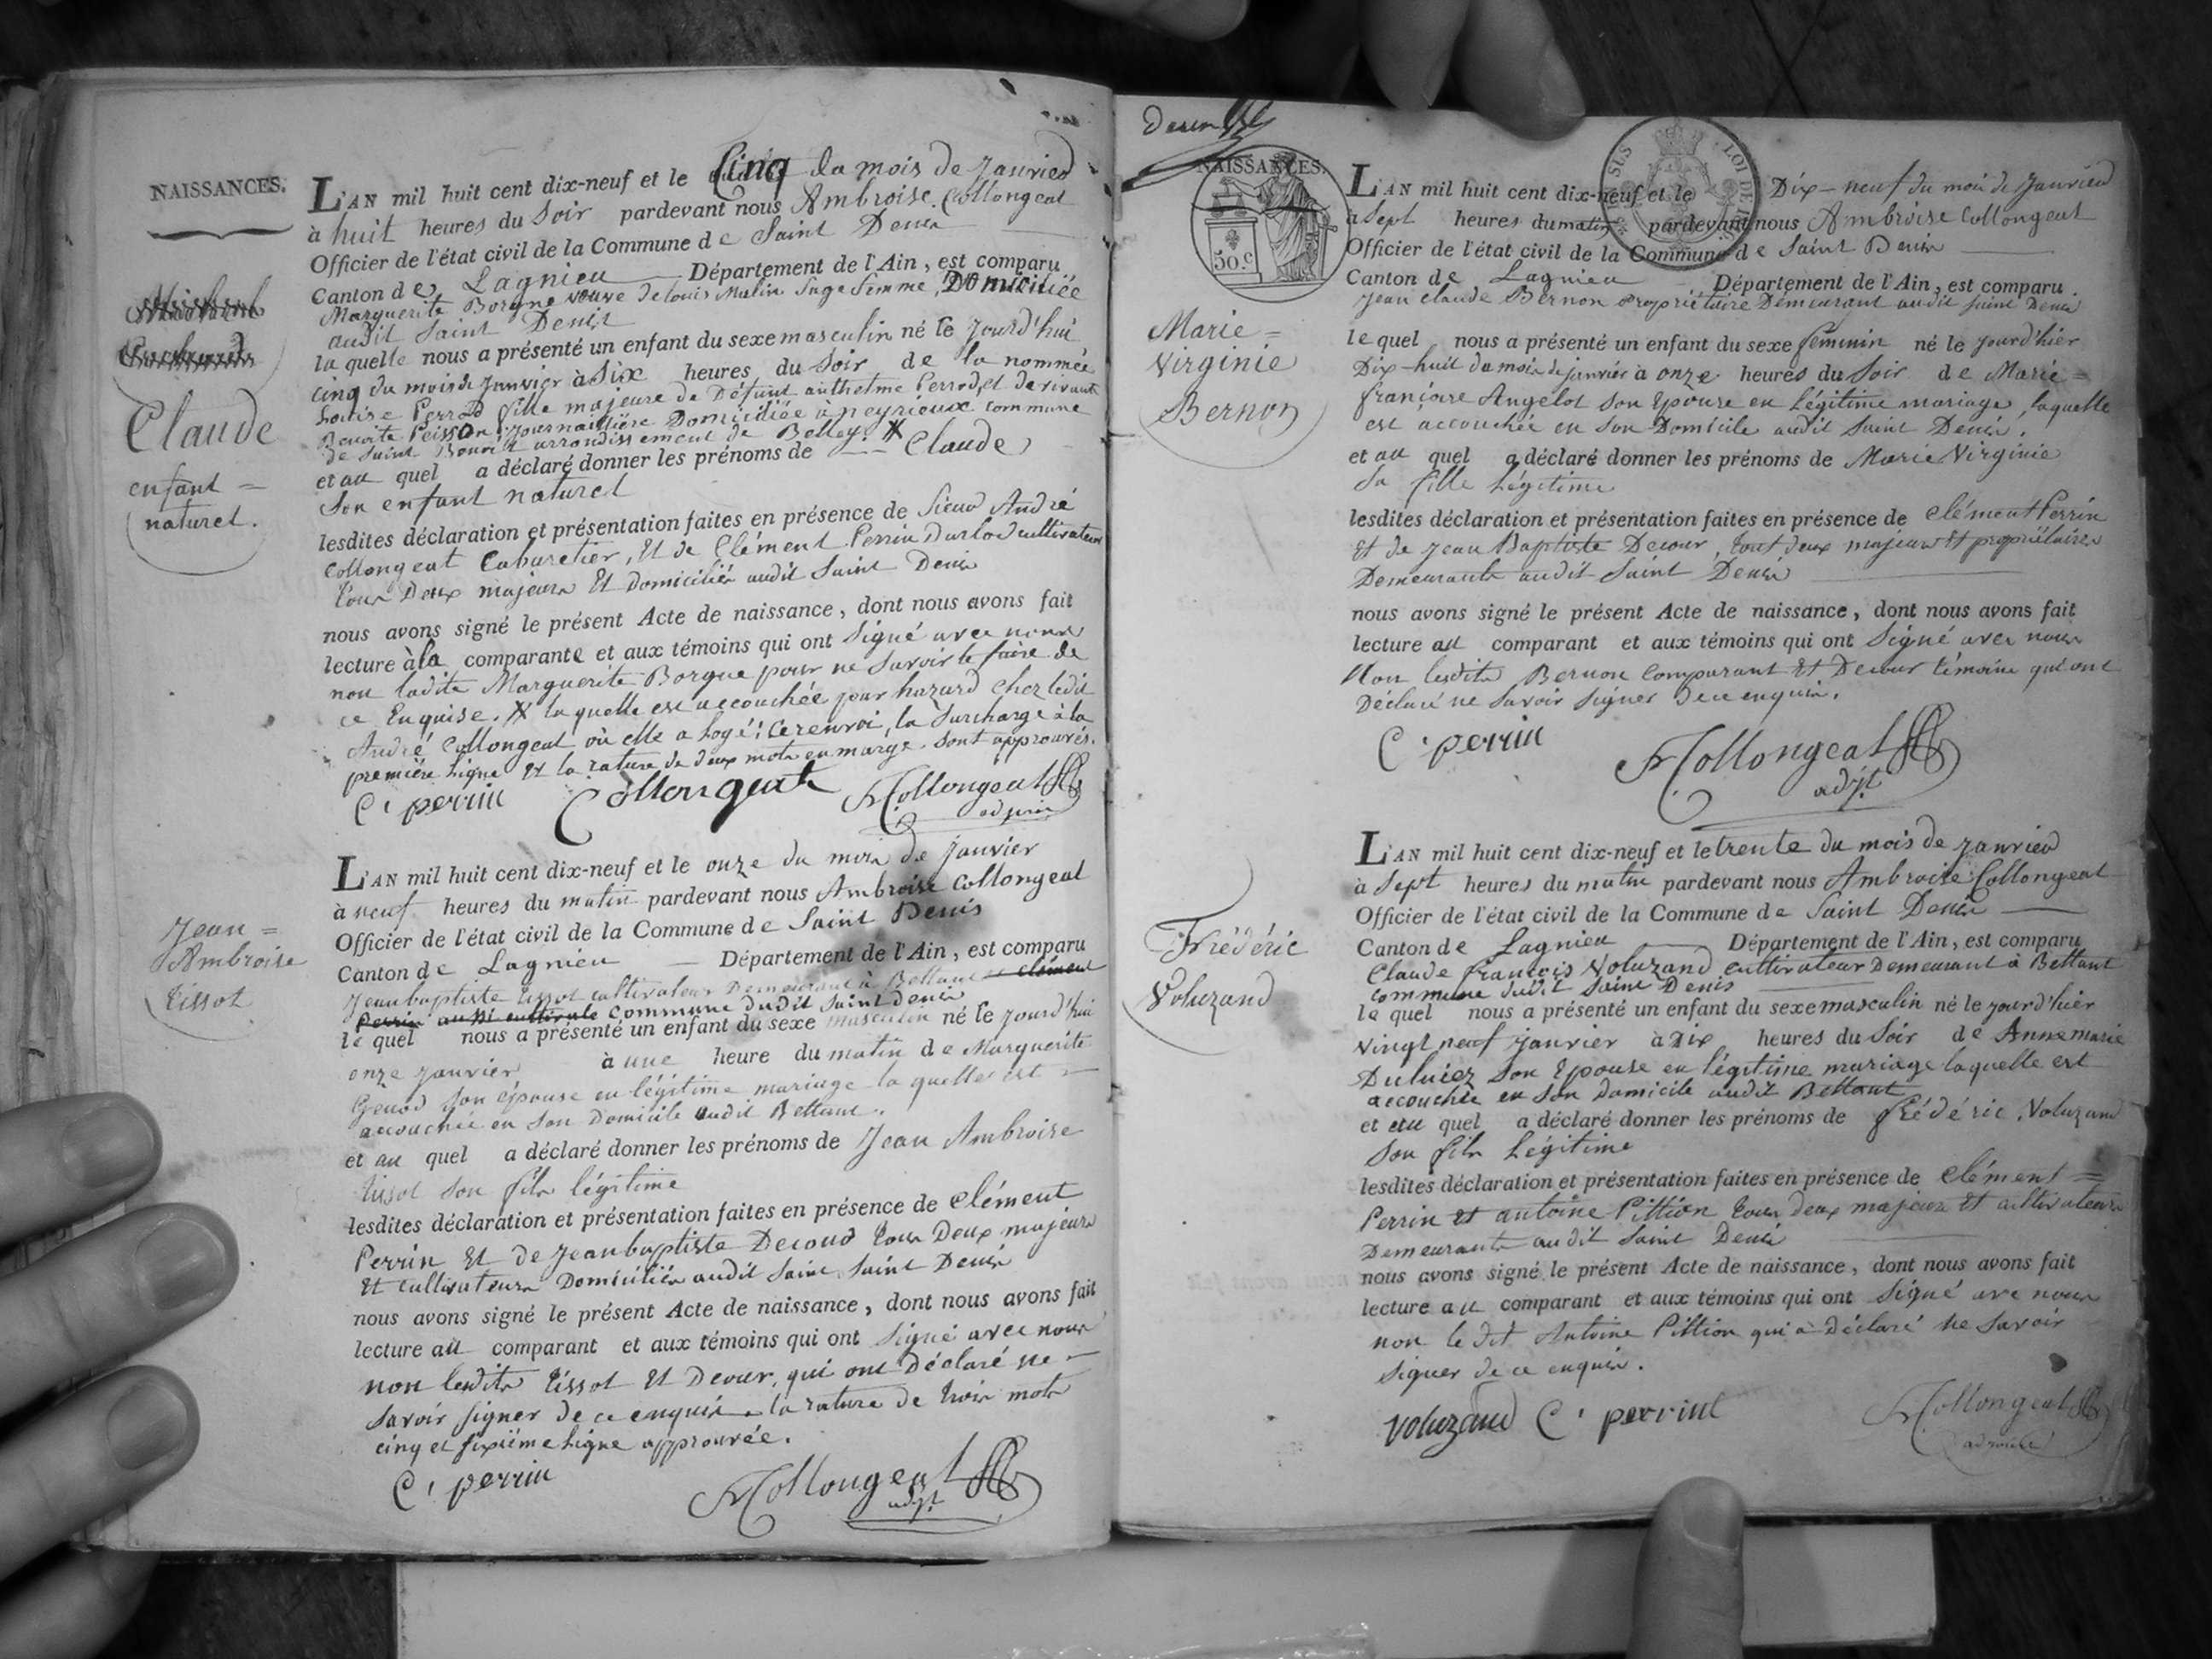 NAISSANCES.
Claude
enfant =
naturel.
L'AN mil huit cent dix-neuf et le Cinq du mois de Janvier
à huit heures du Soir pardevant nous Ambroise Collongeat
Officier de l'état civil de la Commune de Saint Denis
Canton de Lagnieu Département de l'Ain, est comparu
Marguerite Borgne veuve de louis Malin Sage femme, Domiciliée
audit Saint Denis
la quelle nous a présenté un enfant du sexe masculin né le jourd'hui
cinq du mois de Janvier à Six heures du Soir de la nommée
Louise Perrod fille majeure de Défunt anthelme Perrod, et de vivante
Benoite Peisson, journaillière Domiciliée à peyrieux commune
de Saint arrondissement de Belley. X
et au quel a déclaré donner les prénoms de Claude
Son enfant naturel
lesdites déclaration et présentation faites en présence de Sieur André
Collongeat Cabaretier, Et de Clément Perrin cultivateur
tous Deux majeurs Et domiciliés audit Saint Denis
nous avons signé le présent Acte de naissance, dont nous avons fait
lecture à la comparante et aux témoins qui ont Signé avec nous
non ladite Marguerite Borgne pour ne Savoir le faire de
ce Enquise. X la quelle est accouchée par hazard chez ledit
André Collongeat où elle a logé; ce renvoi, la Surcharge à la
première ligne Et la rature de deux mots en marge sont approuvés.
C. perrin Collongeat Collongeat
adjoint
Jean =
Ambroise
tissot
L'AN mil huit cent dix-neuf et le onze du mois de Janvier
à neuf heures du matin pardevant nous Ambroise Collongeat
Officier de l'état civil de la Commune de Saint Denis
Canton de Lagnieu Département de l'Ain, est comparu
Jean baptiste tissot cultivateur Demeurant à Bettant et Clément
Perrin aussi cultivate commune dudit Saint denis
le quel nous a présenté un enfant du sexe masculin né le jourd'hui
onze janvier à une heure du matin de Marguerite
Genod son épouse en légitime mariage la quelle est
accouchée en son Domicile audit Bettant.
et au quel a déclaré donner les prénoms de Jean Ambroise
tissot son fils légitime
lesdites déclaration et présentation faites en présence de Clément
Perrin Et de Jean baptiste Decour tous Deux majeurs
Et cultivateurs Domiciliés audit Saint Saint Denis
nous avons signé le présent Acte de naissance, dont nous avons fait
lecture au comparant et aux témoins qui ont Signé avec nous
non lesdits tissot Et Decour, qui ont Déclaré ne
Savoir signer de ce enquis la rature de trois mots
cinq et sixième ligne approuvée.
C. perrin Collongeat
adjt
NAISSANCES.
50.c
LOI DE
Marie =
Virginie
Bernon
L'AN mil huit cent dix-neuf et le Dix-neuf du mois de Janvier
à Sept heures du matin pardevant nous Ambroise Collongeat
Officier de l'état civil de la Commune de Saint Denis
Canton de Lagnieu Département de l'Ain, est comparu
Jean Claude Bernon propriétaire Demeurant audit Saint Denis
le quel nous a présenté un enfant du sexe féminin né le jourd'hier
Dix-huit du mois de janvier à onze heures du Soir de Marie =
françoise Angelot Son Epouse en légitime mariage, laquelle
est accouchée en Son Domicile audit Saint Denis.
et au quel a déclaré donner les prénoms de Marie Virginie
Sa fille légitime
lesdites déclaration et présentation faites en présence de Clément Perrin
Et de Jean Baptiste Decour, tout deux majeurs Et propriétaires
Demeurants audit Saint Denis
nous avons signé le présent Acte de naissance, dont nous avons fait
lecture au comparant et aux témoins qui ont Signé avec nous
Non lesdits Bernon Comparant Et Decour témoins qui ont
Déclaré ne Savoir Signer de ce enquis.
C. perrin Collongeat
adjt
Frédéric
Voluzand
L'AN mil huit cent dix-neuf et le trente du mois de Janvier
à Sept heures du matin pardevant nous Ambroise Collongeat
Officier de l'état civil de la Commune de Saint Denis
Canton de Lagnieu Département de l'Ain, est comparu
Claude François Voluzand cultivateur Demeurant à Bettant
Commune dudit Saint Denis
le quel nous a présenté un enfant du sexe masculin né le jourd'hier
Vingt neuf janvier à Dix heures du Soir de Anne marie
Duluiez Son Epouse en légitime mariage laquelle est
accouchée en Son Domicile audit Bettant
et au quel a déclaré donner les prénoms de frédéric Voluzand
Son fils légitime
lesdites déclaration et présentation faites en présence de Clément =
Perrin Et antoine Pittion tous deux majeurs Et cultivateurs
Demeurants audit Saint Denis
nous avons signé le présent Acte de naissance, dont nous avons fait
lecture au comparant et aux témoins qui ont Signé avec nous
non le dit Antoine Pittion qui a Déclaré ne Savoir
Signer de ce enquis.
Voluzand C. perrin Collongeat